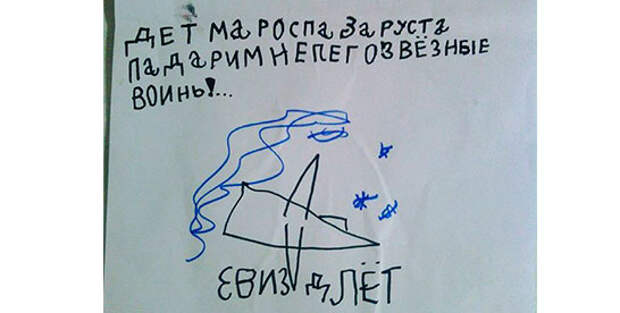 ДЕТ МА РОСПА ЗАРУСТА
ПАДАРИМНЕ ПЕГО ЗВЁЗНЫЕ
ВОИНЬ!...
ЕВИЗДЛЁТ